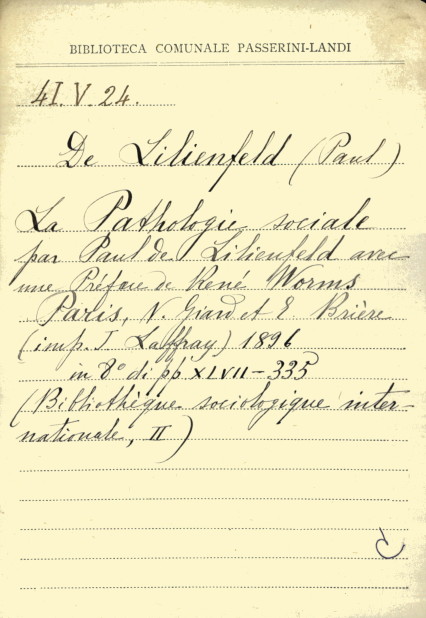 BIBLIOTECA COMUNALE PASSERINI-LANDI
4I. V. 24.
De Lilienfeld (Paul)
La Pathologie sociale
par Paul de Lilienfeld avec
une Préface de René Worms
Paris, V. Giard et E Brière
(imp. J Laffray) 1896
in 8° di pp XLVII-335
(Bibliothèque sociologique inter-
nationale, II)